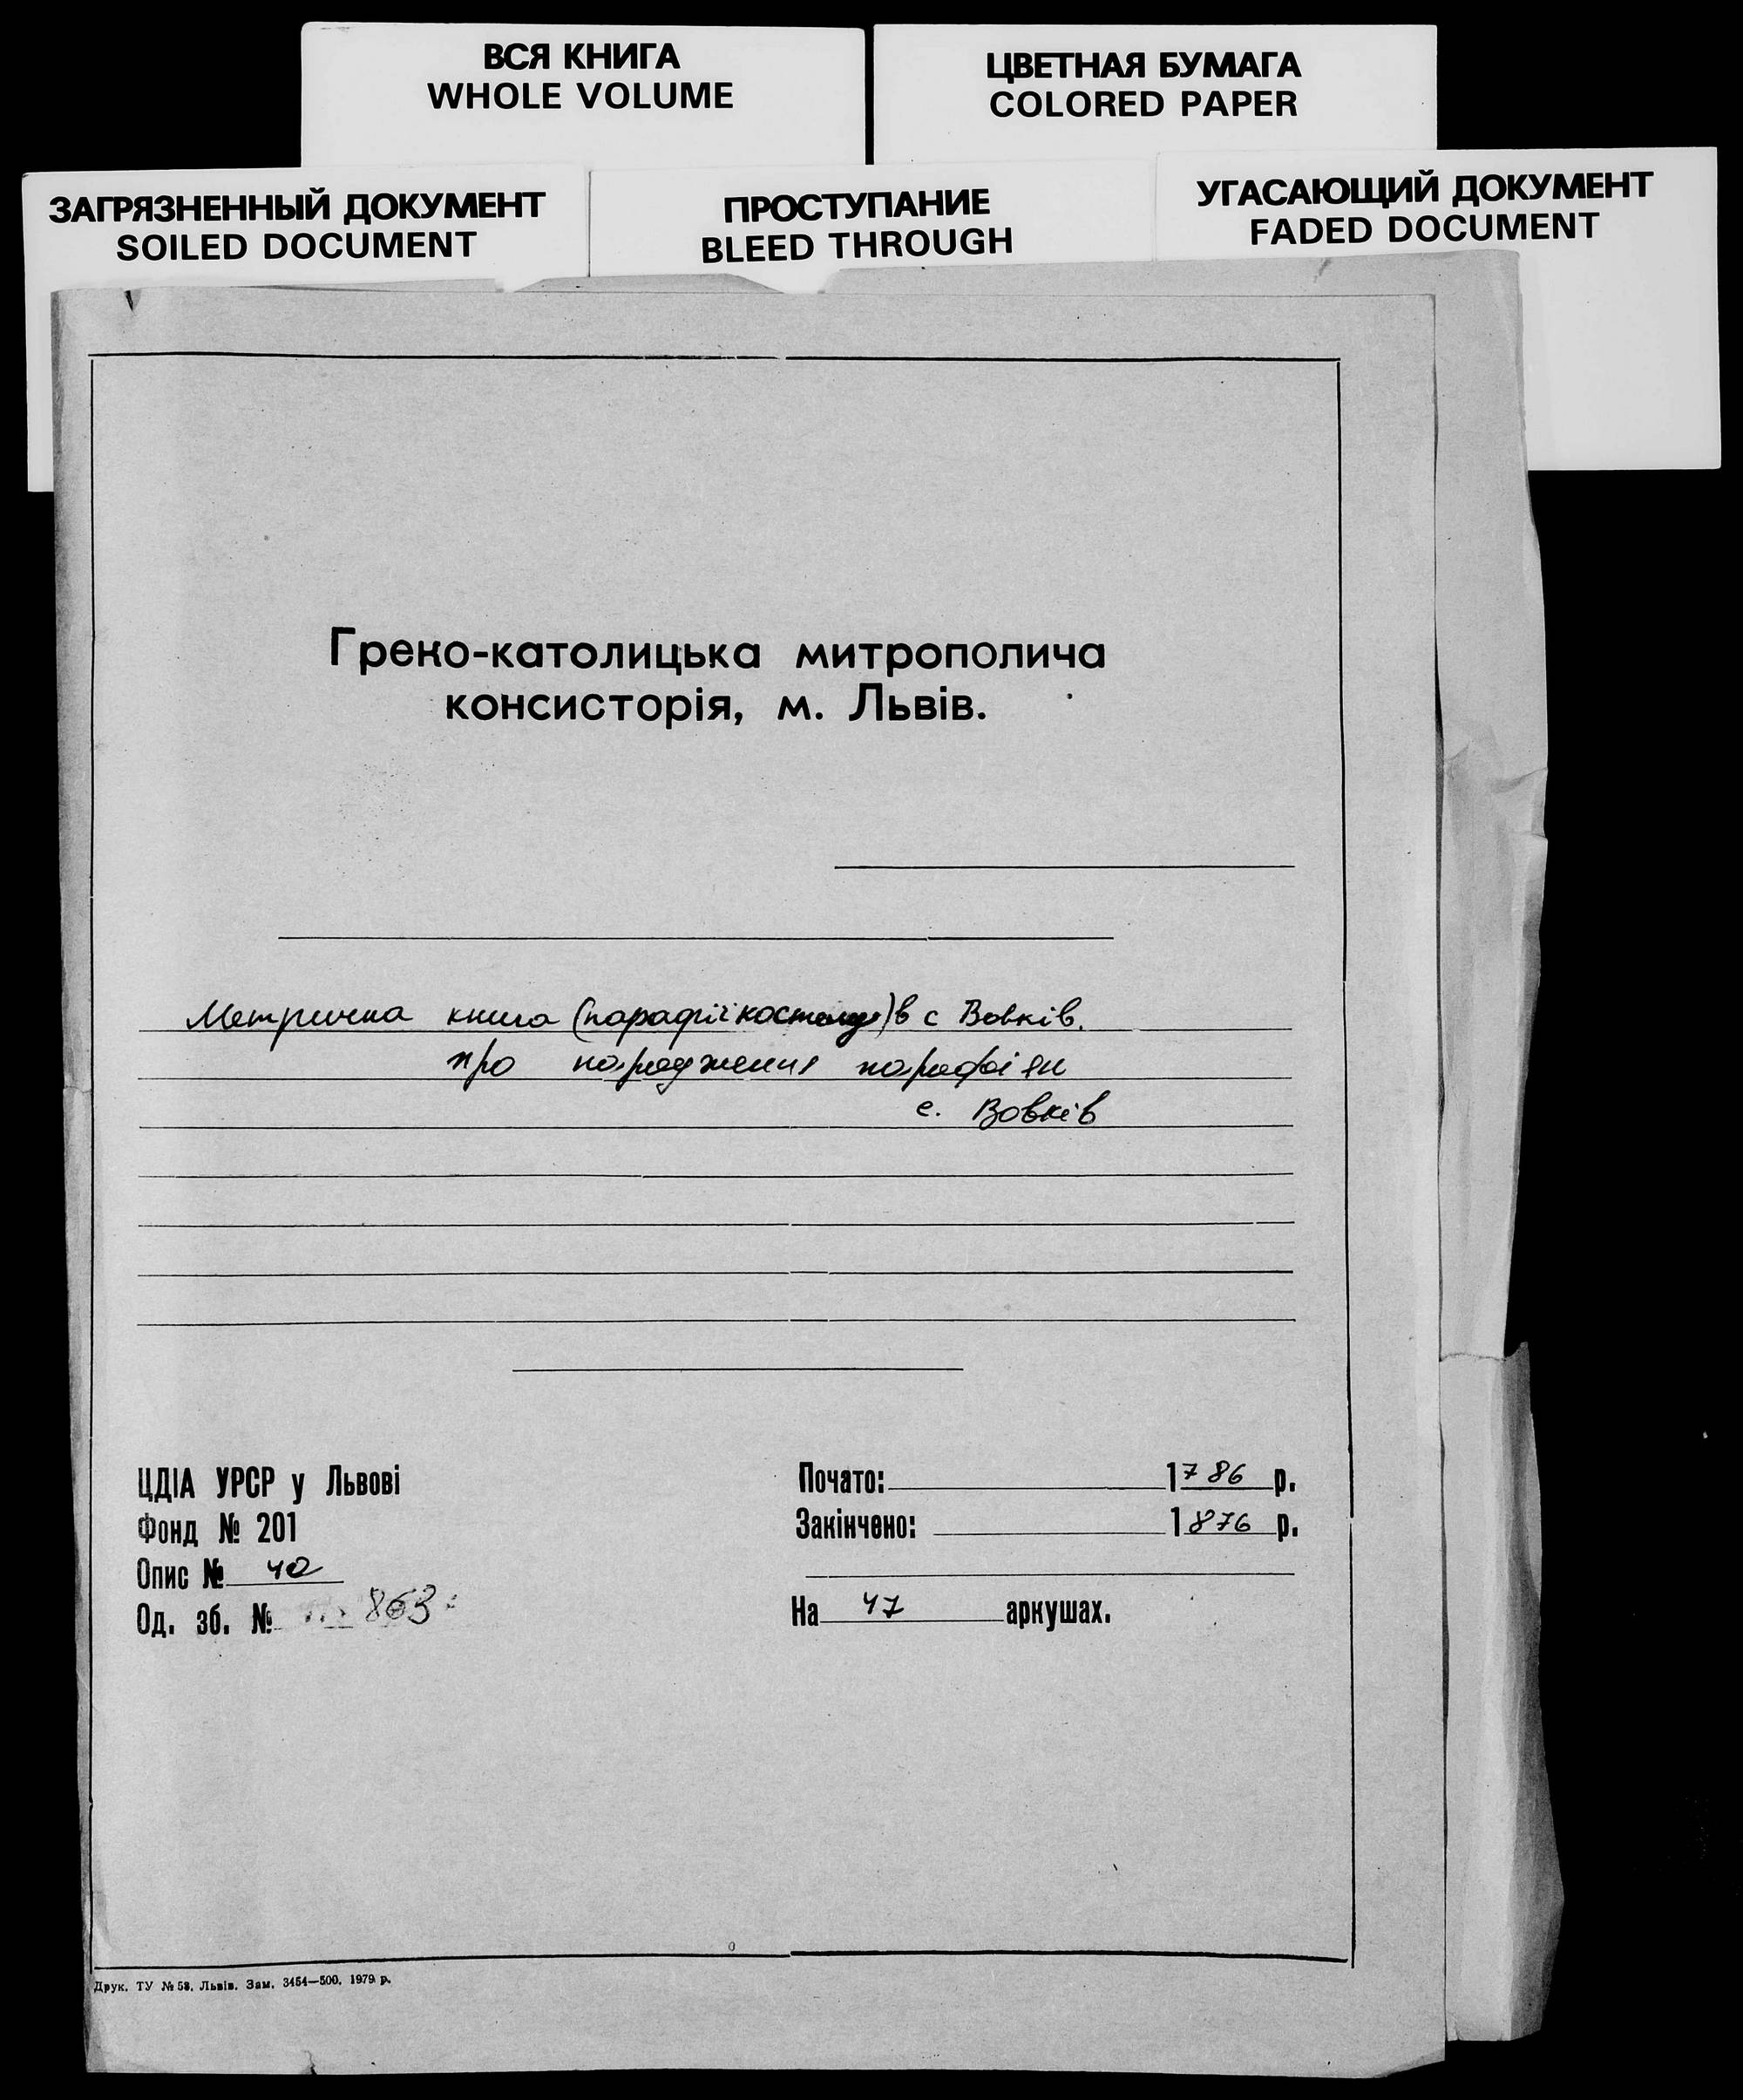 ВСЯ КНИГА
WHOLE VOLUME
ЦВЕТНАЯ БУМАГА
COLORED PAPER
ЗАГРЯЗНЕННЫЙ ДОКУМЕНТ
SOILED DOCUMENT
ПРОСТУПАНИЕ
BLEED THROUGH
УГАСАЮЩИЙ ДОКУМЕНТ
FADED DOCUMENT
Греко-католицька митрополича
консисторія, м. Львів.
Метрична книга (парафії костелу) в с Вовків.
про народження парафіян
с. Вовків
ЦДІА УРСР у Львові
Фонд № 201
Опис № 4а
Од. зб. № 863
Почато: 1786 р.
Закінчено: 1876 р.
На 47 аркушах.
Друк. ТУ № 58. Львів. Зам. 3454—500. 1979 р.